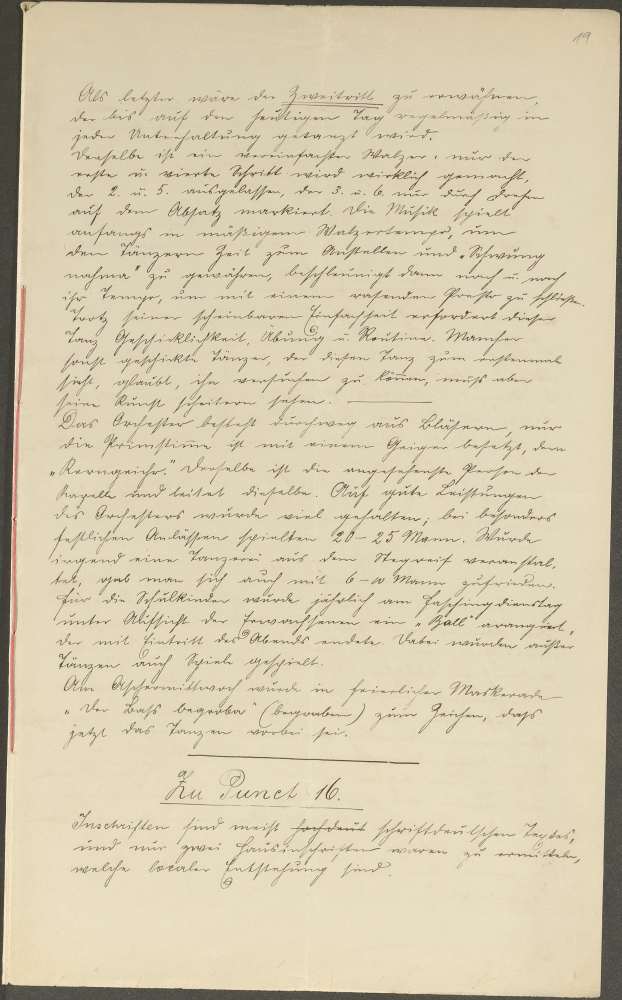 19
Als letzter wäre der Zweitritt zu erwähnen,
der bis auf den heutigen Tag regelmäßig in
jeder Unterhaltung getanzt wird.
Derselbe ist ein vereinfachter Walzer; nur der
erste u. vierte Schritt wird wirklich gemacht,
der 2. u. 5. ausgelassen, der 3. u. 6. nur durch Drehen
auf dem Absatz markiert. Die Musik spielt
anfangs in mäßigem Walzertempo, um
den Tänzern Zeit zum Anstellen und „Schwung
nahma“ zu gewähren, beschleunigt dann nach u. nach
ihr Tempo, um mit einem rasenden Presto zu schließen.
Trotz seiner scheinbaren Einfachheit erfordert dieser
Tanz Geschicklichkeit, Übung u. Routine. Mancher
sonst geschickte Tänzer, der diesen Tanz zum erstenmal
sieht, glaubt, ihn versuchen zu können, muß aber
seine Kunst scheitern sehen.
Das Orchester besteht durchweg aus Bläsern, nur
die Primstimme ist mit einem Geiger besetzt, dem
Derselbe ist die angesehenste Person der
Kapelle und leitet dieselbe. Auf gute Leistungen
des Orchesters wurde viel gehalten; bei besonders
festlichen Anlässen spielten 20-25 Mann. Wurde
irgend eine Tanzerei aus dem Stegreif veranstal-
tet, gab man sich auch mit 6-10 Mann zufrieden.
Für die Schulkinder wurde jährlich am Faschingdienstag
unter Aufsicht der Erwachsenen ein „Ball“ arangiert,
der mit Eintritt des Abends endete. Dabei wurden außer
Tänzen auch Spiele gespielt.
Am Aschermittwoch wurde in feierlicher Maskerade
„der Bass begroba“ (begraben) zum Zeichen, daß
jetzt das Tanzen vorbei sei.
Zu Punct 16.
Inschriften sind meist hochdeut schriftdeutschen Textes,
und nur zwei Hausinschriften waren zu ermitteln,
welche localer Entstehung sind.